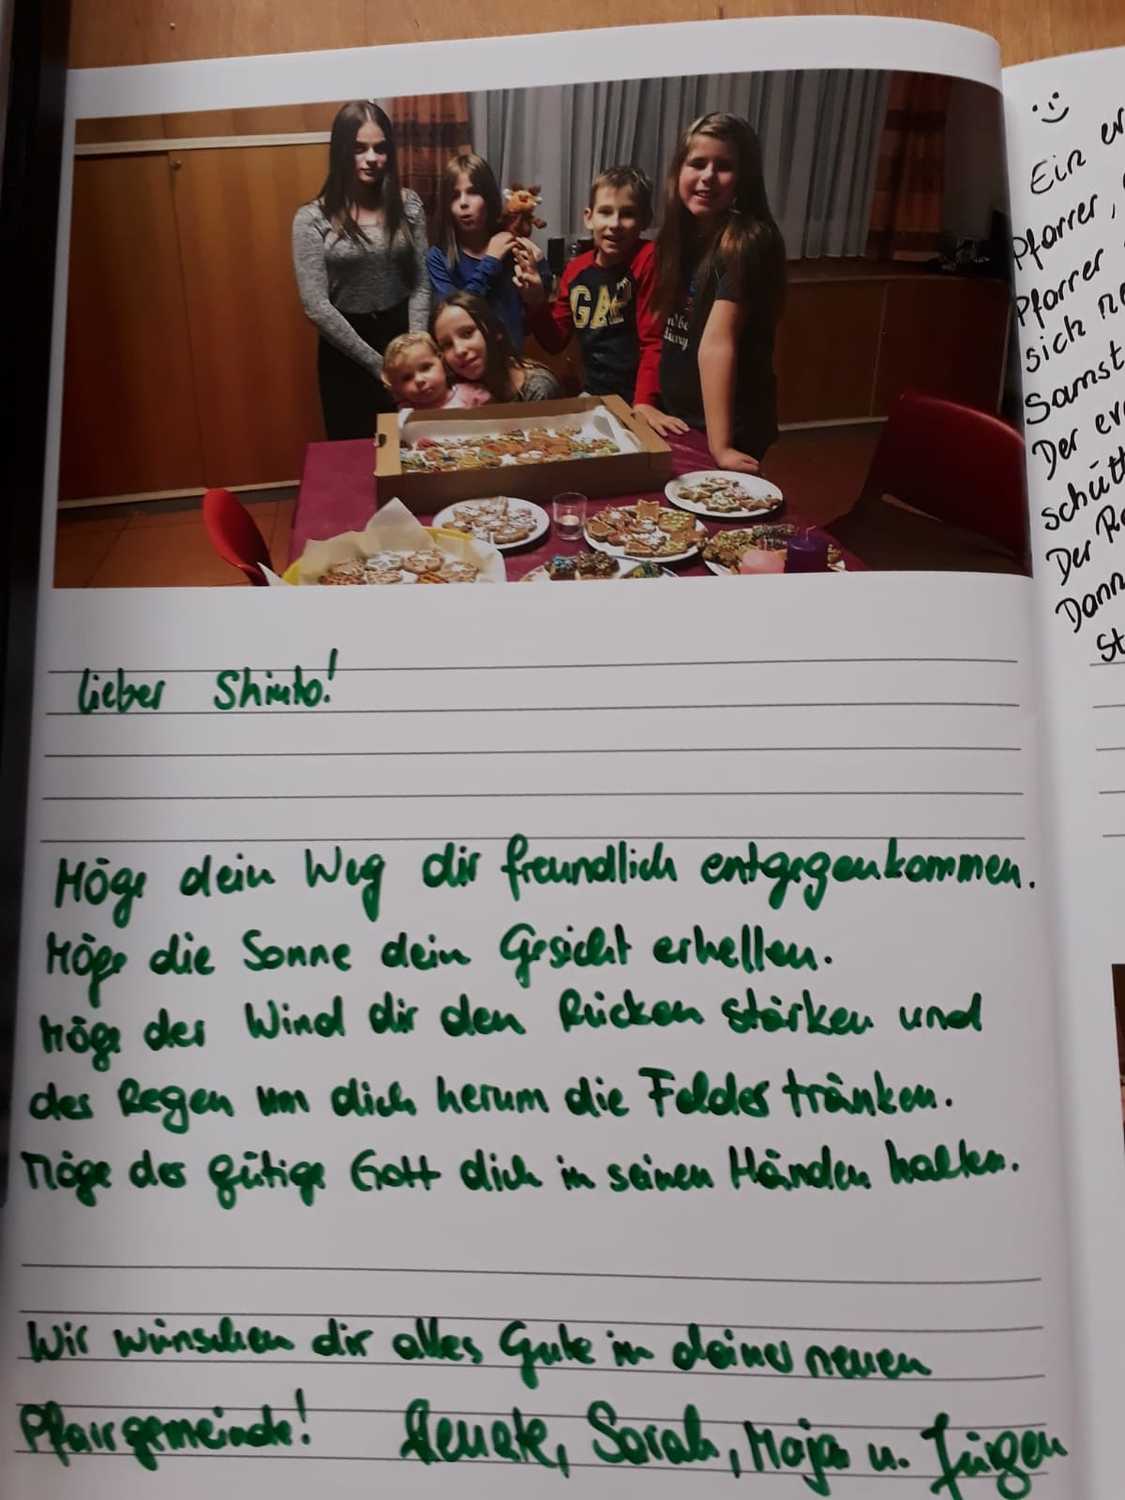 GAP
Lieber Shinto!
Möge dein Weg dir freundlich entgegenkommen.
Möge die Sonne dein Gesicht erhellen.
Möge der Wind dir den Rücken stärken und
der Regen um dich herum die Felder tränken.
Möge der gütige Gott dich in seinen Händen halten.
Wir wünschen dir alles Gute in deiner neuen
Pfarrgemeinde! Renate, Sarah, Maja u. Jürgen
Ein
Pfarrer,
Pfarrer
sich
Der
Der
Dann